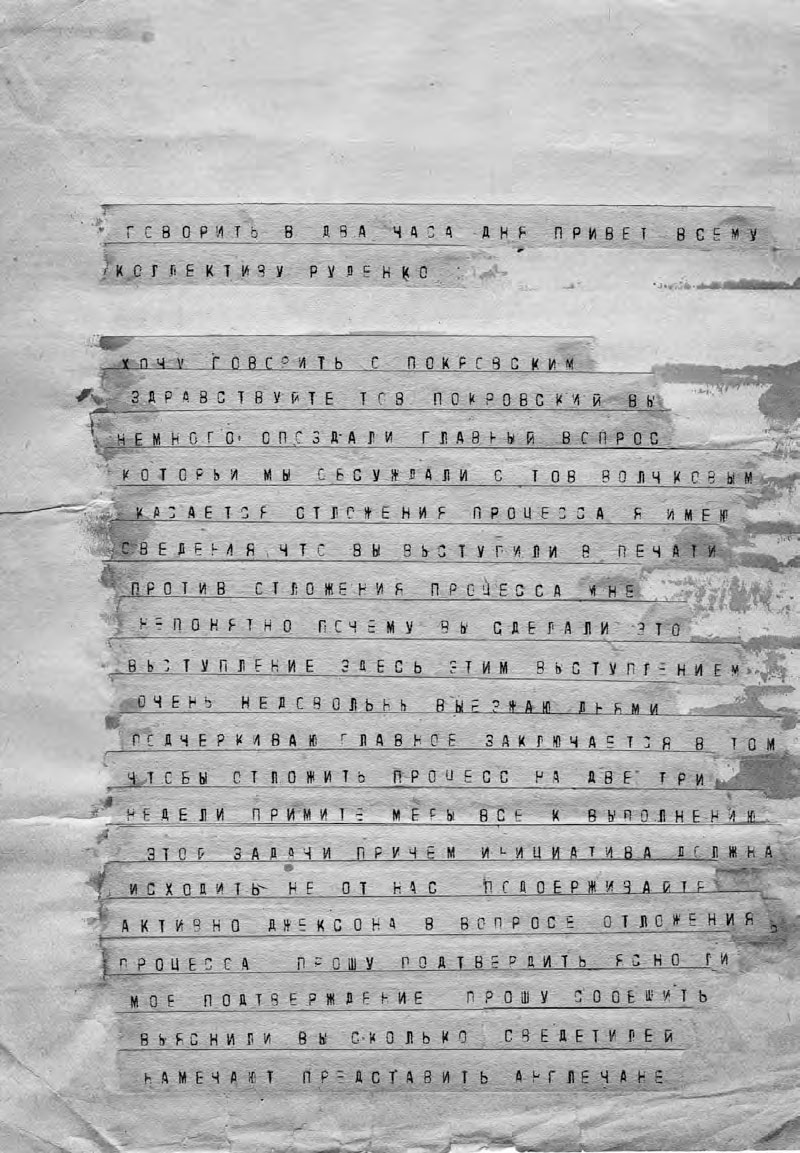 ГОВОРИТЬ В ДВА ЧАСА ДНЯ ПРИВЕТ ВСЕМУ
КОЛЛЕКТИВУ РУДЕНКО
ХОЧУ ГОВОРИТЬ С ПОКРОВСКИМ
ЗДРАВСТВУЙТЕ ТОВ ПОКРОВСКИЙ ВЫ
НЕМНОГО ОПОЗДАЛИ ГЛАВНЫЙ ВОПРОС
КОТОРЫЙ МЫ ОБСУЖДАЛИ С ТОВ ВОЛЧКОВЫМ
КАСАЕТСЯ ОТЛОЖЕНИЯ ПРОЦЕССА Я ИМЕЮ
СВЕДЕНИЯ ЧТО ВЫ ВЫСТУПИЛИ В ПЕЧАТИ
ПРОТИВ ОТЛОЖЕНИЯ ПРОЦЕССА МНЕ
НЕПОНЯТНО ПОЧЕМУ ВЫ СДЕЛАЛИ ЭТО
ВЫСТУПЛЕНИЕ ЗДЕСЬ ЭТИМ ВЫСТУПЛЕНИЕМ
ОЧЕНЬ НЕДОВОЛЬНЫ ВЫЕЗЖАЮ ДНЯМИ
ПОДЧЕРКИВАЮ ГЛАВНОЕ ЗАКЛЮЧАЕТСЯ В ТОМ
ЧТОБЫ ОТЛОЖИТЬ ПРОЦЕСС НА ДВЕ ТРИ
НЕДЕЛИ ПРИМИТЕ МЕРЫ ВСЕ К ВЫПОЛНЕНИЮ
ЭТОЙ ЗАДАЧИ ПРИЧЕМ ИНИЦИАТИВА ДОЛЖНА
ИСХОДИТЬ НЕ ОТ НАС ПОДДЕРЖИВАЙТЕ
АКТИВНО ДЖЕКСОНА В ВОПРОСЕ ОТЛОЖЕНИЯ
ПРОЦЕССА ПРОШУ ПОДТВЕРДИТЬ ЯСНО ЛИ
МОЕ ПОДТВЕРЖДЕНИЕ ПРОШУ СООБЩИТЬ
ВЫЯСНИЛИ ВЫ СКОЛЬКО СВЕДЕТИЛЕЙ
НАМЕЧАЮТ ПРЕДСТАВИТЬ АНГЛЕЧАНЕ